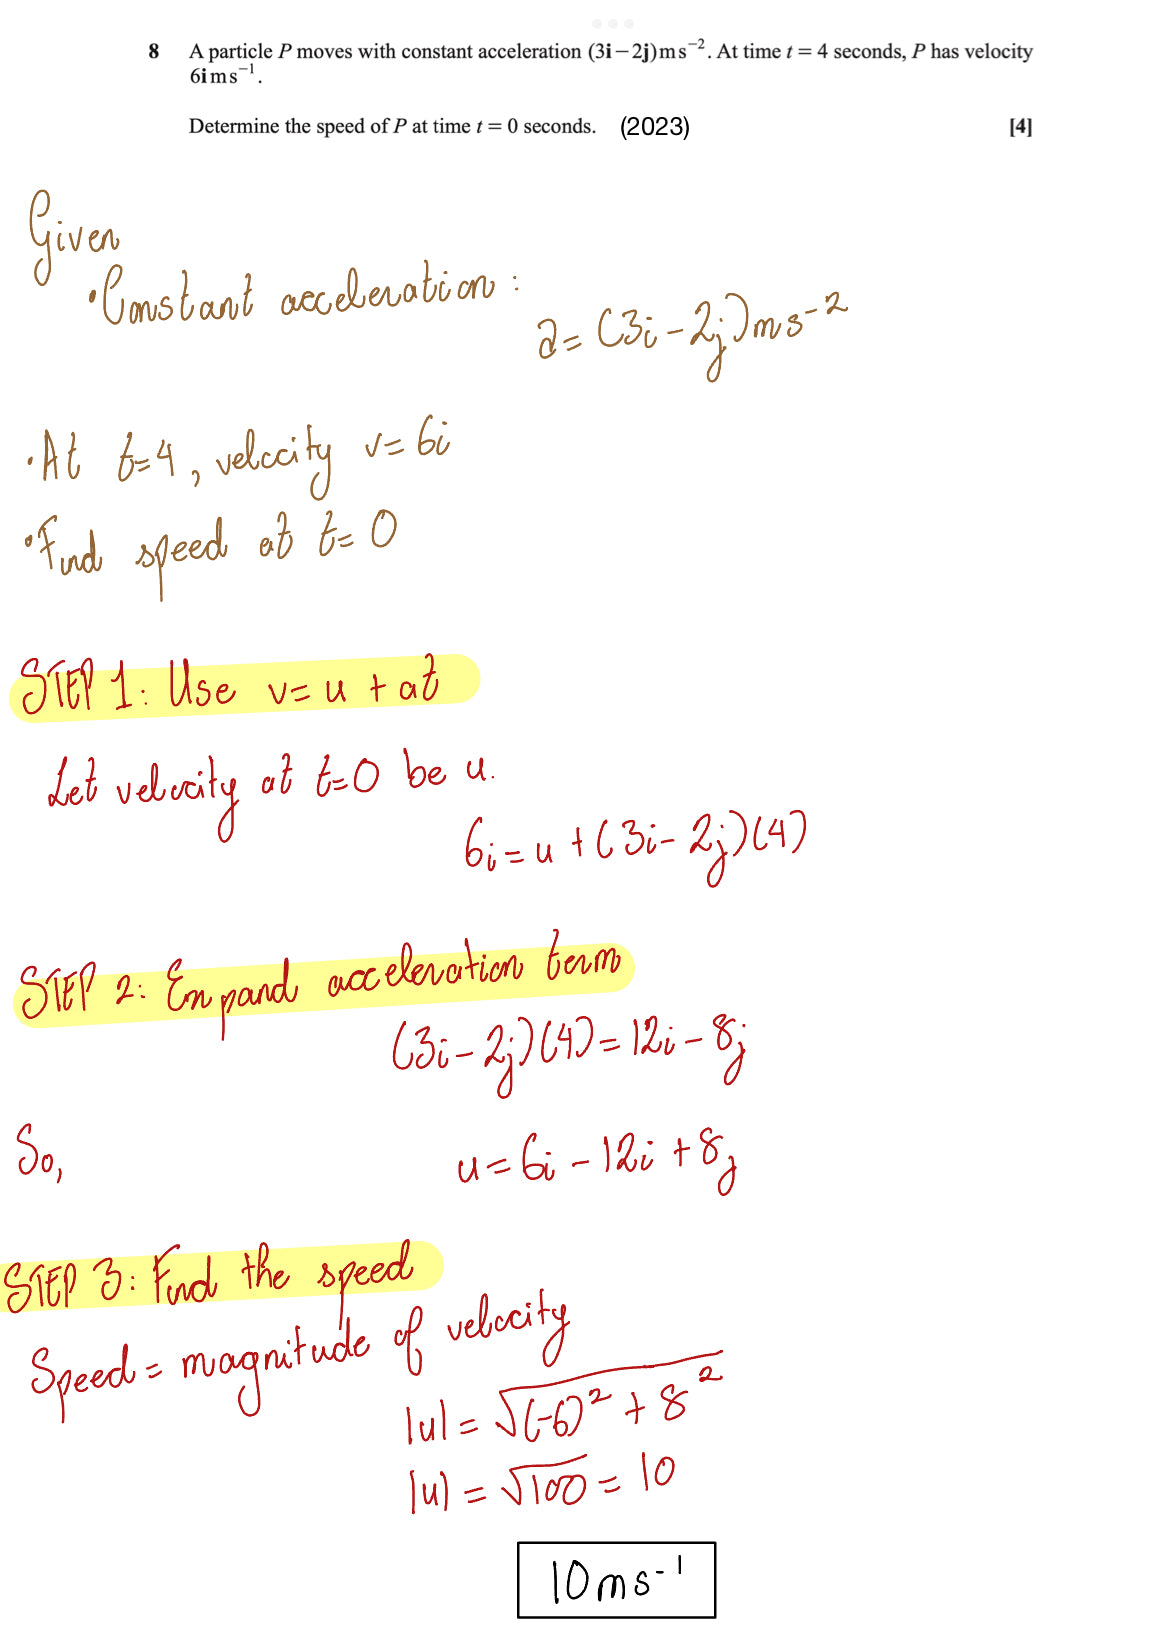 8 A particle P moves with constant acceleration (3i − 2j) m s⁻². At time t = 4 seconds, P has velocity
6i m s⁻¹.
Determine the speed of P at time t = 0 seconds. (2023) [4]
Given
• Constant acceleration :
a = (3i − 2j) m s⁻²
• At t=4, velocity v= 6i
• Find speed at t= 0
STEP 1: Use v= u + at
Let velocity at t=0 be u.
6i = u + (3i − 2j)(4)
STEP 2: Expand acceleration term
(3i − 2j)(4) = 12i − 8j
So,
u = 6i − 12i + 8j
STEP 3: Find the speed
Speed = magnitude of velocity
|u| = √(-6)² + 8²
|u| = √100 = 10
10 m s⁻¹